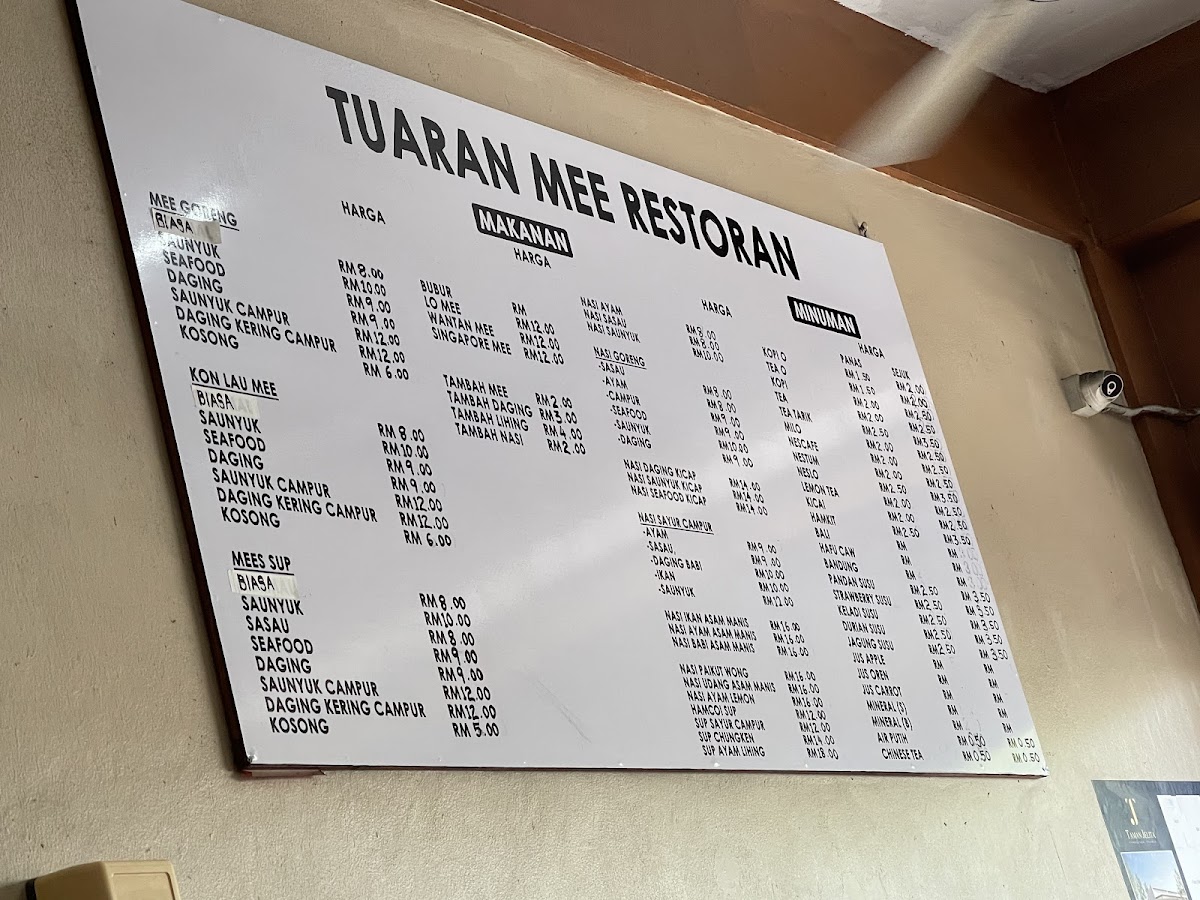 TUARAN MEE RESTORAN
MAKANAN
MEE GORENG HARGA
BIASA RM 8.00
SAUNYUK RM 10.00
SEAFOOD RM 9.00
DAGING RM 9.00
SAUNYUK CAMPUR RM 12.00
DAGING KERING CAMPUR RM 12.00
KOSONG RM 6.00
KON LAU MEE
BIASA RM 8.00
SAUNYUK RM 10.00
SEAFOOD RM 9.00
DAGING RM 9.00
SAUNYUK CAMPUR RM 12.00
DAGING KERING CAMPUR RM 12.00
KOSONG RM 6.00
MEES SUP
BIASA RM 8.00
SAUNYUK RM 10.00
SASAU RM 8.00
SEAFOOD RM 9.00
DAGING RM 9.00
SAUNYUK CAMPUR RM 12.00
DAGING KERING CAMPUR RM 12.00
KOSONG RM 5.00
HARGA
BUBUR RM
LO MEE RM 12.00
WANTAN MEE RM 12.00
SINGAPORE MEE RM 12.00
TAMBAH MEE RM 2.00
TAMBAH DAGING RM 3.00
TAMBAH LIHING RM 4.00
TAMBAH NASI RM 2.00
HARGA
NASI AYAM RM 8.00
NASI SASAU RM 8.00
NASI SAUNYUK RM 10.00
NASI GORENG
-SASAU RM 8.00
-AYAM RM 8.00
-CAMPUR RM 9.00
-SEAFOOD RM 9.00
-SAUNYUK RM 10.00
-DAGING RM 9.00
NASI DAGING KICAP RM 14.00
NASI SAUNYUK KICAP RM 14.00
NASI SEAFOOD KICAP RM 14.00
NASI SAYUR CAMPUR
-AYAM RM 9.00
-SASAU RM 9.00
-DAGING BABI RM 10.00
-IKAN RM 10.00
-SAUNYUK RM 12.00
NASI IKAN ASAM MANIS RM 16.00
NASI AYAM ASAM MANIS RM 16.00
NASI BABI ASAM MANIS RM 16.00
NASI PAIKUT WONG RM 16.00
NASI UDANG ASAM MANIS RM 16.00
NASI AYAM LEMON RM 16.00
HAMCOI SUP RM 12.00
SUP SAYUR CAMPUR RM 12.00
SUP CHUNGKEN RM 14.00
SUP AYAM LIHING RM 18.00
MINUMAN
HARGA
PANAS SEJUK
KOPI O RM 1.50 RM 2.00
TEA O RM 1.50 RM 2.00
KOPI RM 2.00 RM 2.50
TEA RM 2.00 RM 2.50
TEA TARIK RM 2.50 RM 3.50
MILO RM 2.00 RM 2.50
NESCAFE RM 2.00 RM 2.50
NESTUM RM 2.00 RM 2.50
NESLO RM 2.50 RM 3.50
LEMON TEA RM 2.00 RM 2.50
KICAI RM 2.00 RM 2.50
HAMKIT RM 2.50 RM 3.50
BALI RM RM
HAFU CAW RM RM
BANDUNG RM RM
PANDAN SUSU RM 2.50 RM 3.50
STRAWBERRY SUSU RM 2.50 RM 3.50
KELADI SUSU RM 2.50 RM 3.50
DURIAN SUSU RM 2.50 RM 3.50
JAGUNG SUSU RM 2.50 RM 3.50
JUS APPLE RM RM
JUS OREN RM RM
JUS CARROT RM RM
MINERAL (S) RM RM
MINERAL (B) RM RM
AIR PUTIH RM 0.50 RM 0.50
CHINESE TEA RM 0.50 RM 0.50